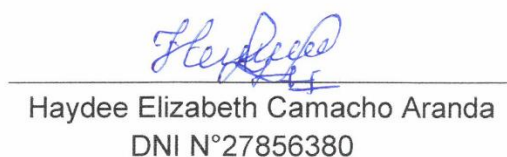 Haydee Elizabeth Camacho Aranda
DNI N°27856380